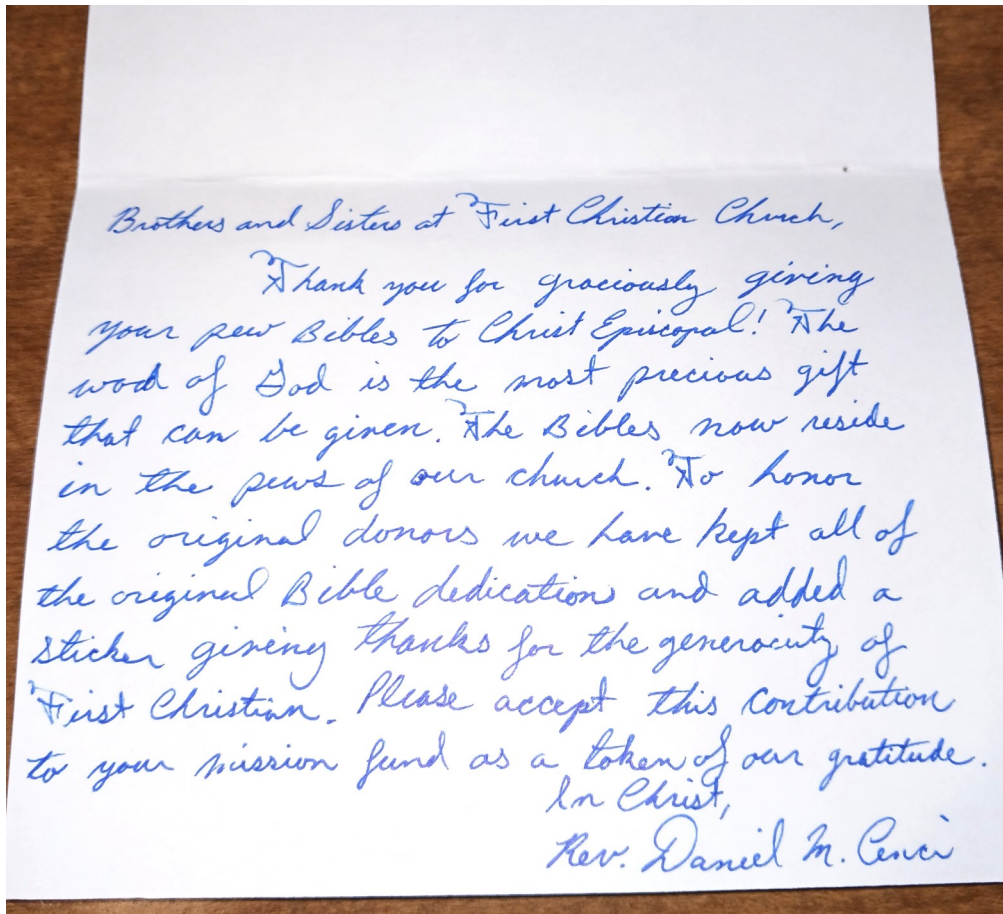 Brothers and Sisters at First Christian Church,
Thank you for graciously giving
your pew Bibles to Christ Episcopal! The
word of God is the most precious gift
that can be given. The Bibles now reside
in the pews of our church. To honor
the original donors we have kept all of
the original Bible dedications and added a
sticker giving thanks for the generocity of
First Christian. Please accept this contribution
to your mission fund as a token of our gratitude.
In Christ,
Rev. Daniel M. Cenci